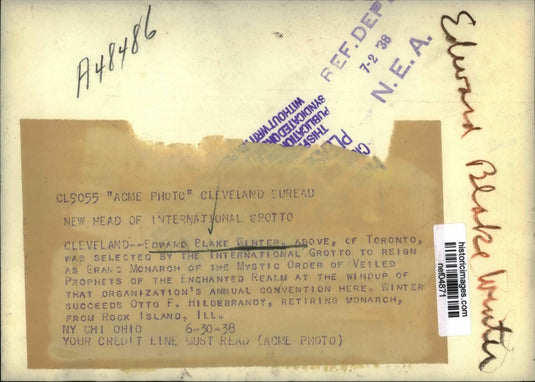 A48486
REF. DEPT.
7-2 '38
N.E.A.
THIS
PUBLICATION
SYNDICATED OR
WITHOUT WRIT
Edward Blake Winter
historicimages.com
nef04871
CL9055 "ACME PHOTO" CLEVELAND BUREAU
NEW HEAD OF INTERNATIONAL GROTTO
CLEVELAND--EDWARD BLAKE WINTER, ABOVE, OF TORONTO,
WAS SELECTED BY THE INTERNATIONAL GROTTO TO REIGN
AS GRAND MONARCH OF THE MYSTIC ORDER OF VEILED
PROPHETS OF THE ENCHANTED REALM AT THE WINDUP OF
THAT ORGANIZATION'S ANNUAL CONVENTION HERE. WINTER
SUCCEEDS OTTO F. HILDEBRANDT, RETIRING MONARCH,
FROM ROCK ISLAND, ILL.
NY CHI OHIO 6-30-38
YOUR CREDIT LINE MUST READ (ACME PHOTO)